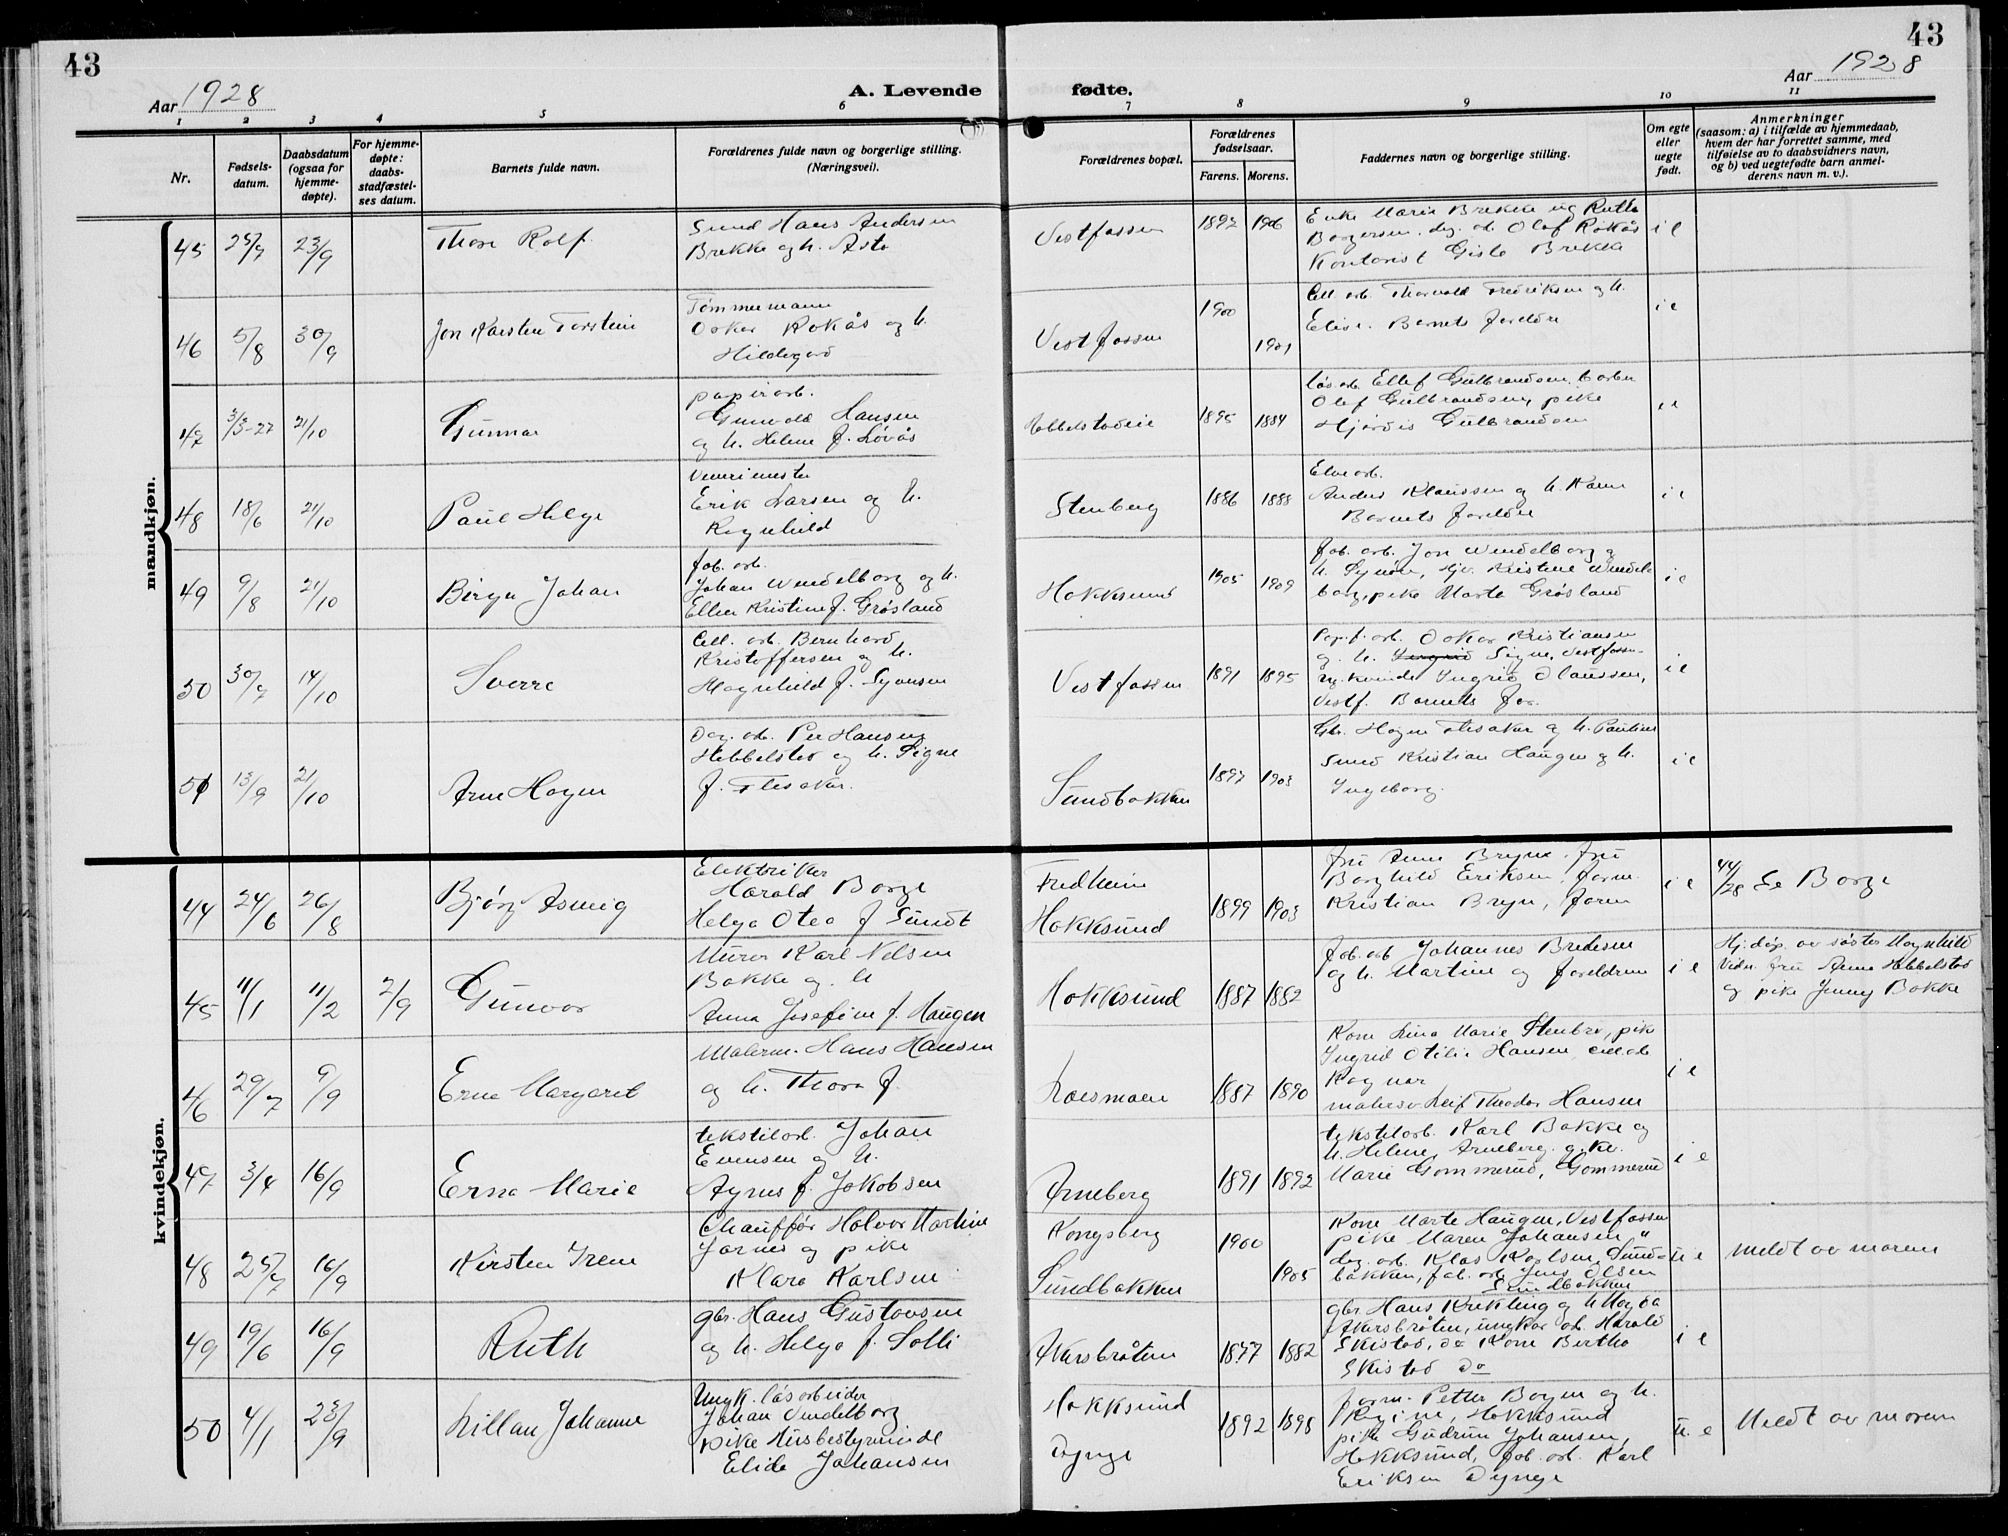 43
43
Aar 1928
A. Levende fødte.
Aar 1928
1 2 3 4 5 6 7 8 9 10 11
Nr.
Fødsels-
datum.
Daabsdatum
(ogsaa for
hjemme-
døpte).
For hjemme-
døpte:
daabs-
stadfæstel-
ses datum.
Barnets fulde navn.
Forældrenes fulde navn og borgerlige stilling.
(Næringsvei).
Forældrenes bopæl.
Forældrenes
fødselsaar.
Farens. Morens.
Faddernes navn og borgerlige stilling.
Om egte
eller
uegte
født.
Anmerkninger
(saasom: a) i tilfælde av hjemmedaab,
hvem der har forrettet samme, med
tilføielse av to daabsvidners navn,
og b) ved uegtefødte barn anmel-
derens navn m. v.).
mandkjøn.
45 25/7 23/9 Thore Rolf
Smed Hans Andersen
Brekke og h. Asta
Vestfossen 1892 1906
Enke Marie Brekke og Ruth
Borgersen, dag. arb. Olaf Rokås
Kontorist Gisle Brekke
i e
46 5/8 30/9 Jon Karsten Torstein
Tømmermann
Oskar Rokås og h.
Hildegard
Vestfossen 1900
1901
Cell. arb. Thorvald Fredriksen og h.
Elise. Barnets foreldre
i e
47 3/3-27 21/10 Gunnar
papirarb.
Gunvald Hansen
og h. Helene f. Løvås
Hobbelstadeie 1895 1884
løsarb. Ellef Gulbrandsen,
Olaf Gulbrandsen, pike
Hjørdis Gulbrandsen
i e
48 18/6 21/10 Paul Helge
Erik Larsen og h.
Ragnhild
Stenberg 1886 1888
Elvearb.
Anders Klaussen og h. Karen
Barnets foreldre
i e
49 9/8 21/10 Birger Johan
fab. arb.
Johan Wendelborg og h.
Ellen Kristine f. Grøsland
Hokksund 1905 1909
fab. arb. Jon Wendelborg og
h. Synøve, hjv. Kristine Wendel-
borg, pike Marta Grøsland
i e
50 30/7 14/10 Sverre
Cell. arb. Bernhard
Kristoffersen og h.
Magnhild f. Syversen
Vestfossen 1891 1895
Pap. f. arb. Oskar Kristiansen
og h. Ingrid Signe, Vestfossen
Ingrid Olaussen,
Vestf. Barnets for.
i e
51 13/9 21/10 Arne Hagen
Dag. arb. Per Hansen
Hobbelstad og h. Signe
f. Flesaker.
Sundbakken 1897 1903
Gbr. Hagen Flesaker og h. Pauline
Smed Kristian Haugen og h.
Ingeborg.
i e
kvindekjøn.
44 24/6 26/8 Bjørg Asveig
Elektriker
Harald Borge
Helga Otea f. Sundt
Fredheim
Hokksund 1899 1903
fru Anna Bryne. fru
Borghild Eriksen, form.
Kristian Bryn, form
i e
44/28 Se Borge
45 11/1 11/2 2/9 Gunvor
Murer Karl Nelsen
Bakke og h
Anna Josefine f. Haugen
Hokksund 1887 1882
fab. arb Johannes Bredesen
og h. Martine og foreldrene
i e
Hj. døp. av søster Magnhild
Vidn. fru Anna Hobbelstad
og pike Jenny Bakke
46 29/7 9/9 Erna Margaret
Malerm. Hans Hansen
og h. Thora f.
Loesmoen 1887 1890
Kone Lina Marie Stenbro, pik
Ingrid Otilie Hansen, cell. arb
Ragnar
malersv. Leif Theodor Hansen
i e
47 3/4 16/9 Erna Marie
tekstilarb. Johan
Evensen og h.
Agnes f. Jakobsen
Arneberg 1891 1892
tekstilarb. Karl Bakke og
h. Helene, Arneberg. g. kv.
Marie Gommerud, Gommerud
i e
48 25/7 16/9 Kirsten Irene
Chauffør Halvor Martine
Jarnes og pike
Klara Karlsen
Kongsberg
Sundbakken
1900
1905
Kone Marte Haugen, Vestfossen
pike Maren Johansen "
dag. arb. Klas Karlsen, Sund-
bakken, fab. arb Jens Olsen
Sundbakken
u e
meldt av moren
49 19/6 16/9 Ruth
gbr. Hans Gustavsen
og h. Helga f. Solli
Akersbråten 1877 1882
gbr. Hans Krekling og h Magda
Akersbråten, ungkar arb Harald
Skistad, do Kone Bertha
Skistad do
i e
50 4/1 23/9 Lillan Johanne
Ungk. løsarbeider
Johan Vendelborg
pike Husbestyrerinde
Elida Johansen
Hokksund
Dynge 1892 1898
form. Petter Boyen og h.
Regine, Hokksund
pike Gudrun Johansen,
Hokksund, fab. arb. Karl
Eriksen Dynge
u. e
Meldt av moren